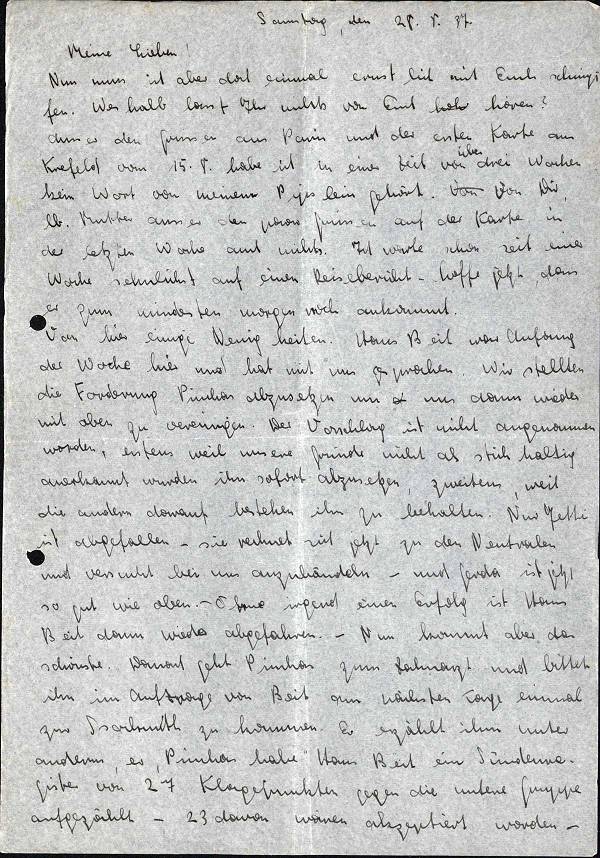 Samstag, den 28. 8. 37.
Meine Lieben!
Nun muss ich aber doch einmal ernstlich mit Euch schimp
fen. Weshalb lasst Ihr nichts von Euch hören?
Ausser den Grüssen aus Paris und der ersten Karte aus
Krefeld vom 15. 8. habe ich in einer Zeit von über drei Wochen
kein Wort von meinem gehört. Von Dir,
lb. Mutter ausser den paar Grüssen auf der Karte in
der letzten Woche auch nichts. Ich warte schon seit einer
Woche sehnlichst auf einen Reisebericht - hoffe jetzt, dass
er zum mindesten morgen noch ankommt.
Von hier einige Neuigkeiten. Hans Beit war Anfang
der Woche hier und hat mit uns gesprochen. Wir stellten
die Forderung Pinchas abzusetzen um uns dann wieder
mit oben zu vereinigen. Der Vorschlag ist nicht angenommen
worden, erstens weil unsere Gründe nicht als stichhaltig
anerkannt wurden ihn sofort abzusetzen, zweitens, weil
die andern darauf bestehen ihn zu behalten. Nur Jetti
ist abgefallen - sie rechnet sich jetzt zu den Neutralen
und versucht bei uns anzubändeln - und Gerda ist jetzt
so gut wie oben. - Ohne irgend einen Erfolg ist Hans
Beit dann wieder abgefahren. - Nun kommt aber das
schönste. Danach geht Pinchas zum Zahnarzt und bittet
ihn im Auftrage von Beit am nächsten Tage einmal
zur zu kommen. Er erzählt ihm unter
anderem, er, Pinchas habe Hans Beit ein Sündenre-
gister von 27 Klagepunkten gegen die untere Gruppe
aufgezählt - 23 davon wären akzeptiert worden -